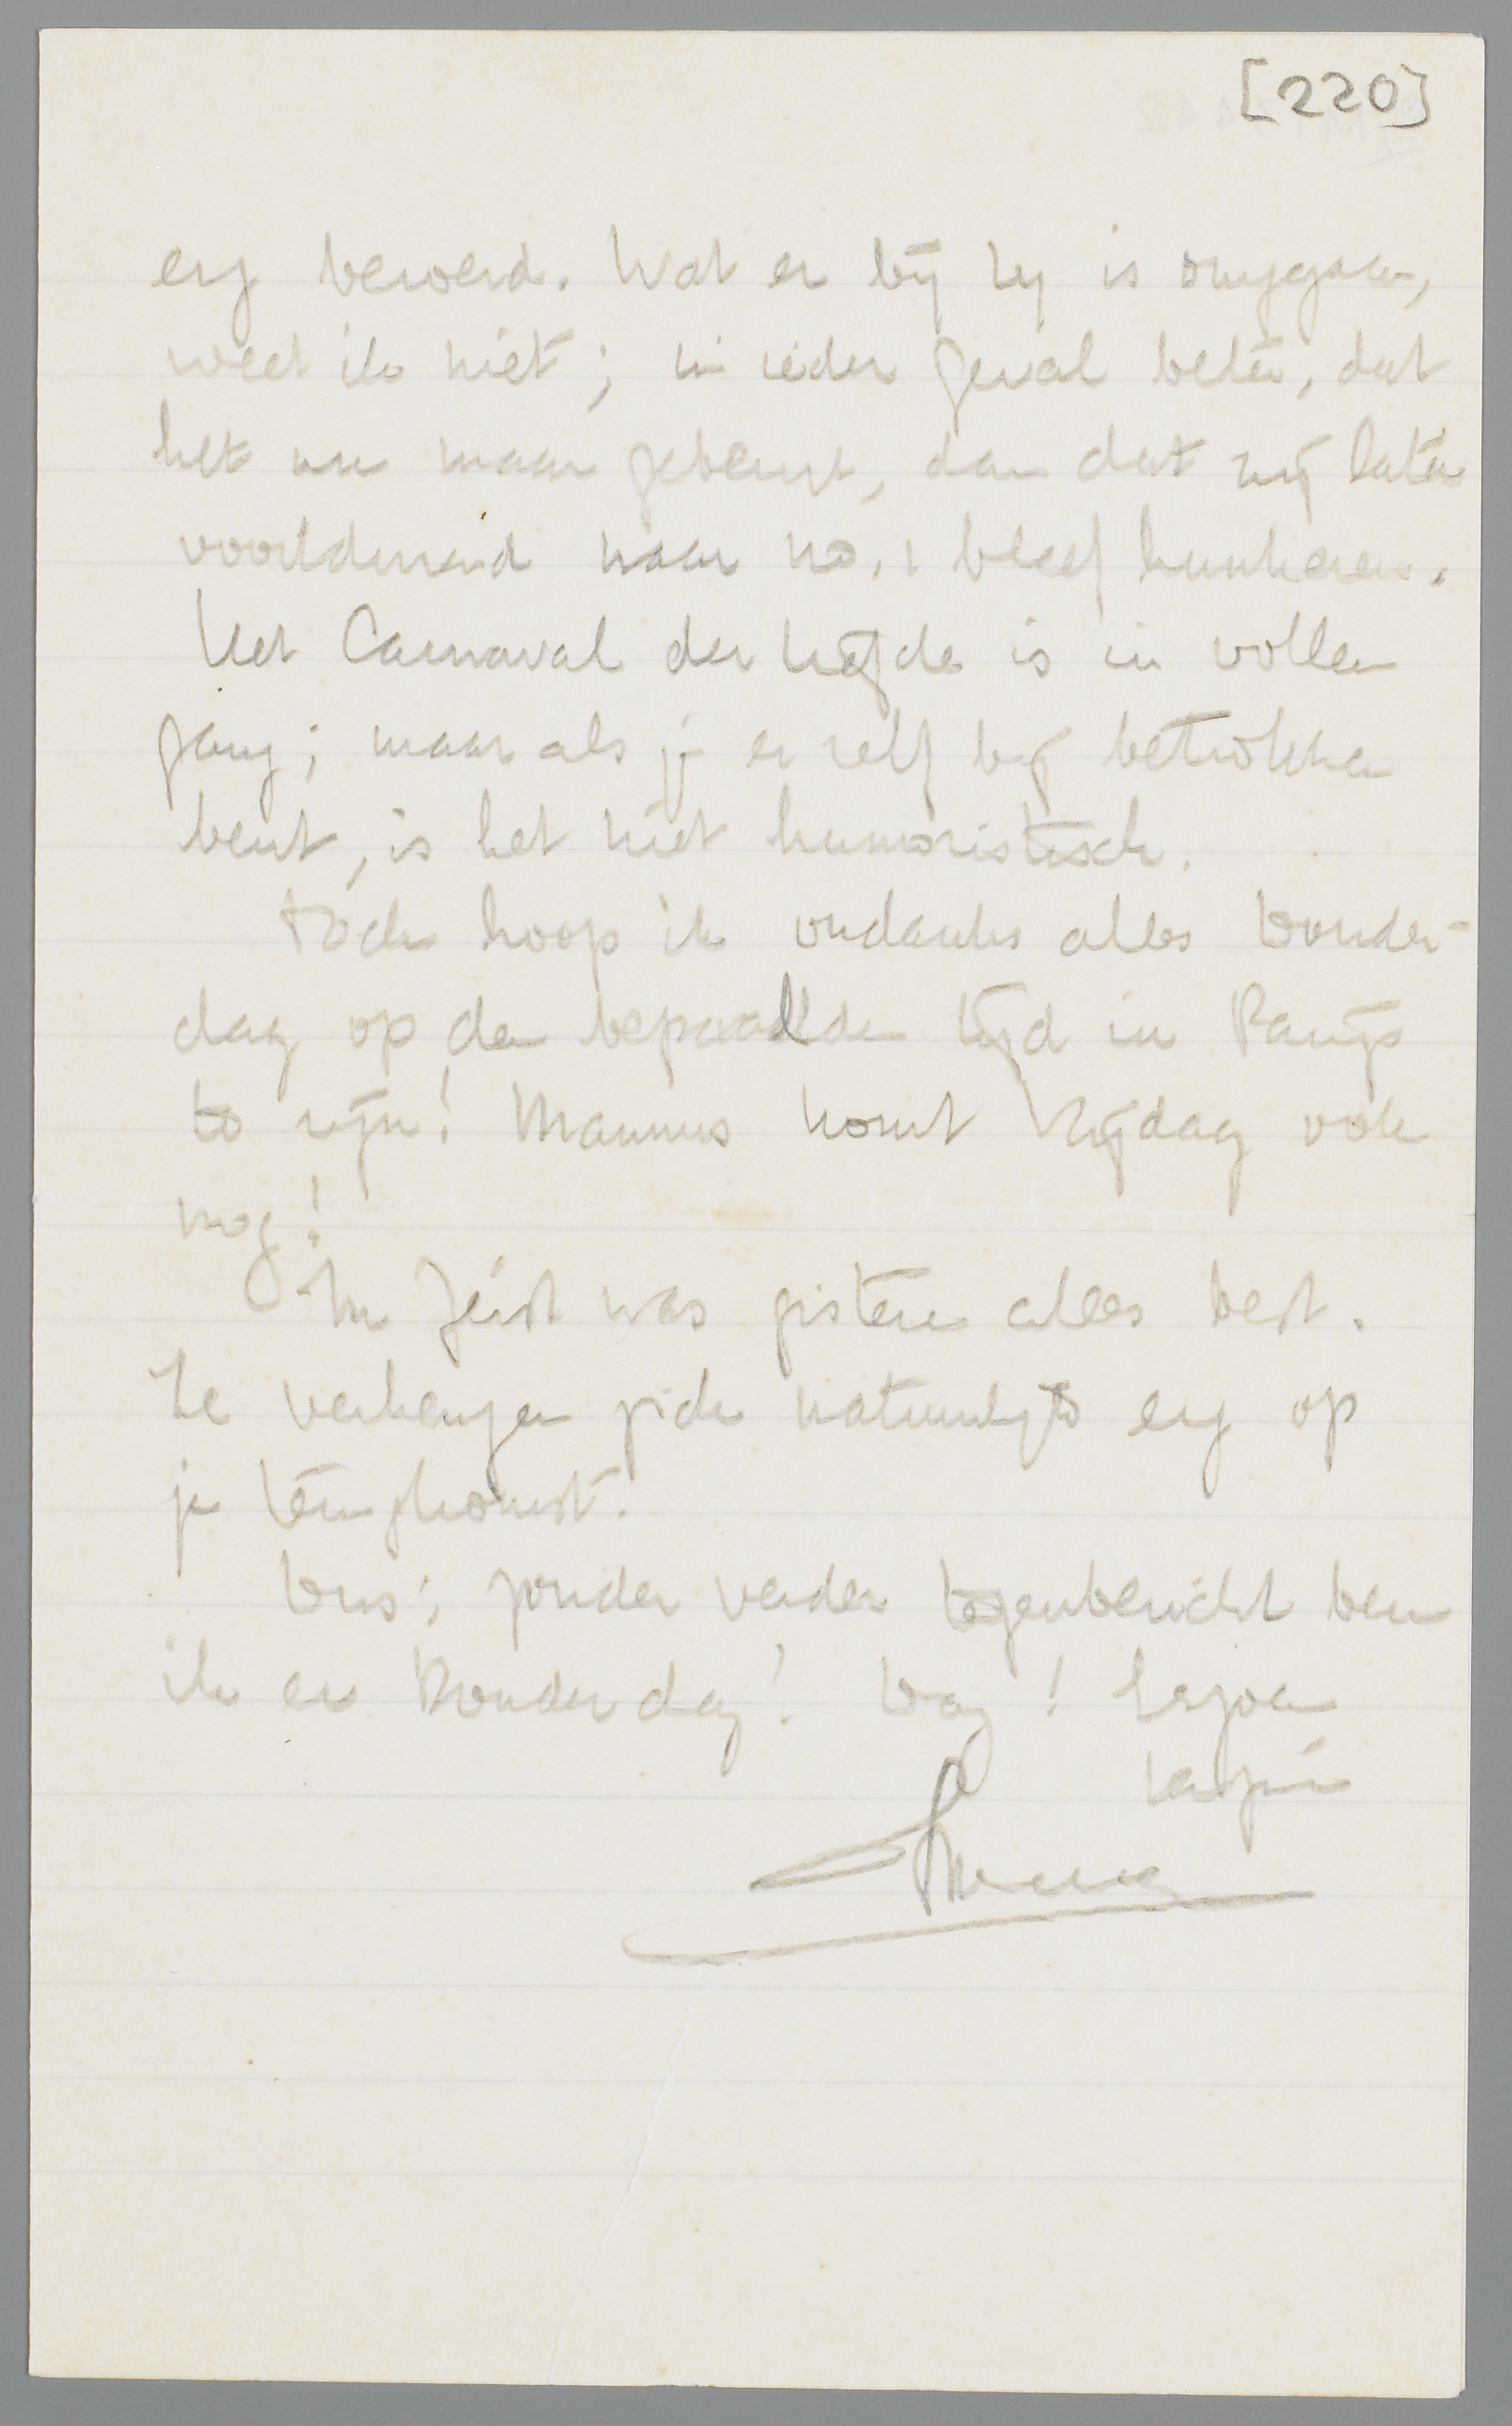 [220]
erg beroerd. Wat er bij Ly is omgegaan,
weet ik niet; in ieder geval beter, dat
het nu maar gebeurt, dan dat zij later
voortdurend naar no. 1 bleef hunkeren.
Het Carnaval der liefde is in vollen
gang; maar als je er zelf bij betrokken
bent, is het niet humoristisch.
Toch hoop ik ondanks alles Donder-
dag op den bepaalden tijd in Parijs
te zijn! Mannus komt Vrijdag ook
nog!
In Zeist was gisteren alles best.
Ze verheugen zich natuurlijk erg op
je terugkomst.
Dus: zonder verder tegenbericht ben
ik er Donderdag! Dag!